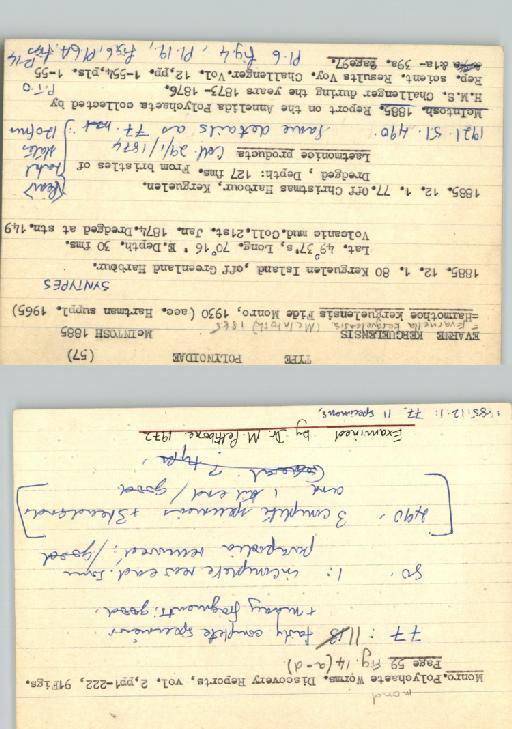 TYPE POLYNOIDAE (57)
EVARNE KERGUELENSIS McINTOSH 1885
= Evarnella kerguelensis (McIntosh) 1885
=Harmothoe kerguelensis Fide Monro, 1930 (acc. Hartman suppl. 1965)
SYNTYPES
1885. 12. 1. 80 Kerguelen Island ,off Greenland Harbour.
Lat. 49°37's, Long. 70°16 ' E.Depth. 30 fms.
Volcanic mud.Coll.21st. Jan. 1874.Dredged at stn.149
1885. 12. 1. 77.Off Christmas Harbour, Kerguelen.
Dredged , Depth: 127 fms. From bristles of
Laetmonice producta Coll. 29/1/1874
1921. 51. 490. Same details as 77.
McIntosh. 1885. Report on the Annelida Polychaeta collected by
H.M.S. Challenger during the years 1873- 1876.
P.T.O
Rep. scient. Results Voy. Challenger.Vol. 12,pp. 1-554,pls. 1-55
&1a- 39a. Page97.
Pl. 6 Fig 4, Pl. 19, Fig 6, Pl 6A. Figs
mond
Monro.Polychaete Worms. Discovery Reports, vol. 2,pp1-222, 91Figs.
Page 59 Fig. 14(a-d).
77 : 11 fairly complete specimens
+ many fragments: good
80. 1: incomplete rees end. Some
parapodia removed: /good
490. 3 complete specimens + 3 headends
and 1 tail end / good
Examined by Dr. M. Pettibone 1972
1885.12.1: 77. 11 specimens.